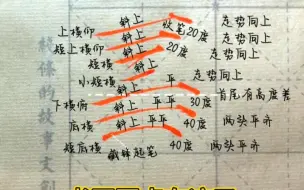 上横仰 斜上 收笔20度 走势向上
短上横仰 斜上 20度 走势向上
短横 斜上 走势向上
小短横 斜上 平平 走势向上
下横俯 斜上 平平 30度 首尾有高度差
底横 斜上 平平 40度 两头平齐
短底横 截锋起笔 40度 两头平齐
线条的故事